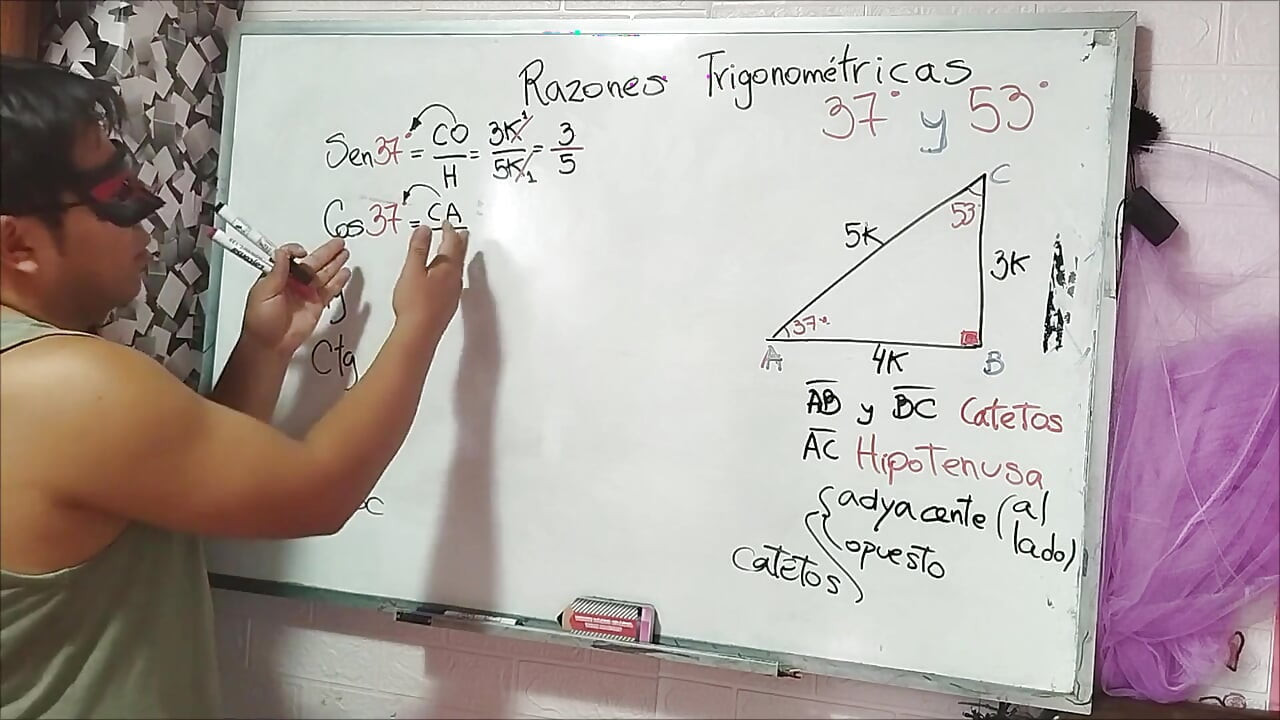 Razones Trigonométricas
37° y 53°
Sen37° = CO/H = 3K/5K = 3/5
1
1
Cos37° = CA
g
Ctg
C
C
53°
5K
3K
37°
A
4K
B
AB y BC Catetos
AC Hipotenusa
Catetos { adyacente (al lado)
opuesto